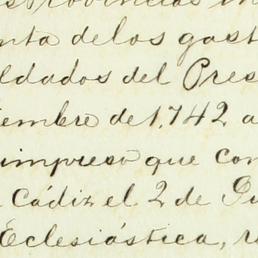 enta delos gast
ldados del Pres
iembre de 1,742 a
impreso que con
Cádiz el 2 de
Eclesiástica,